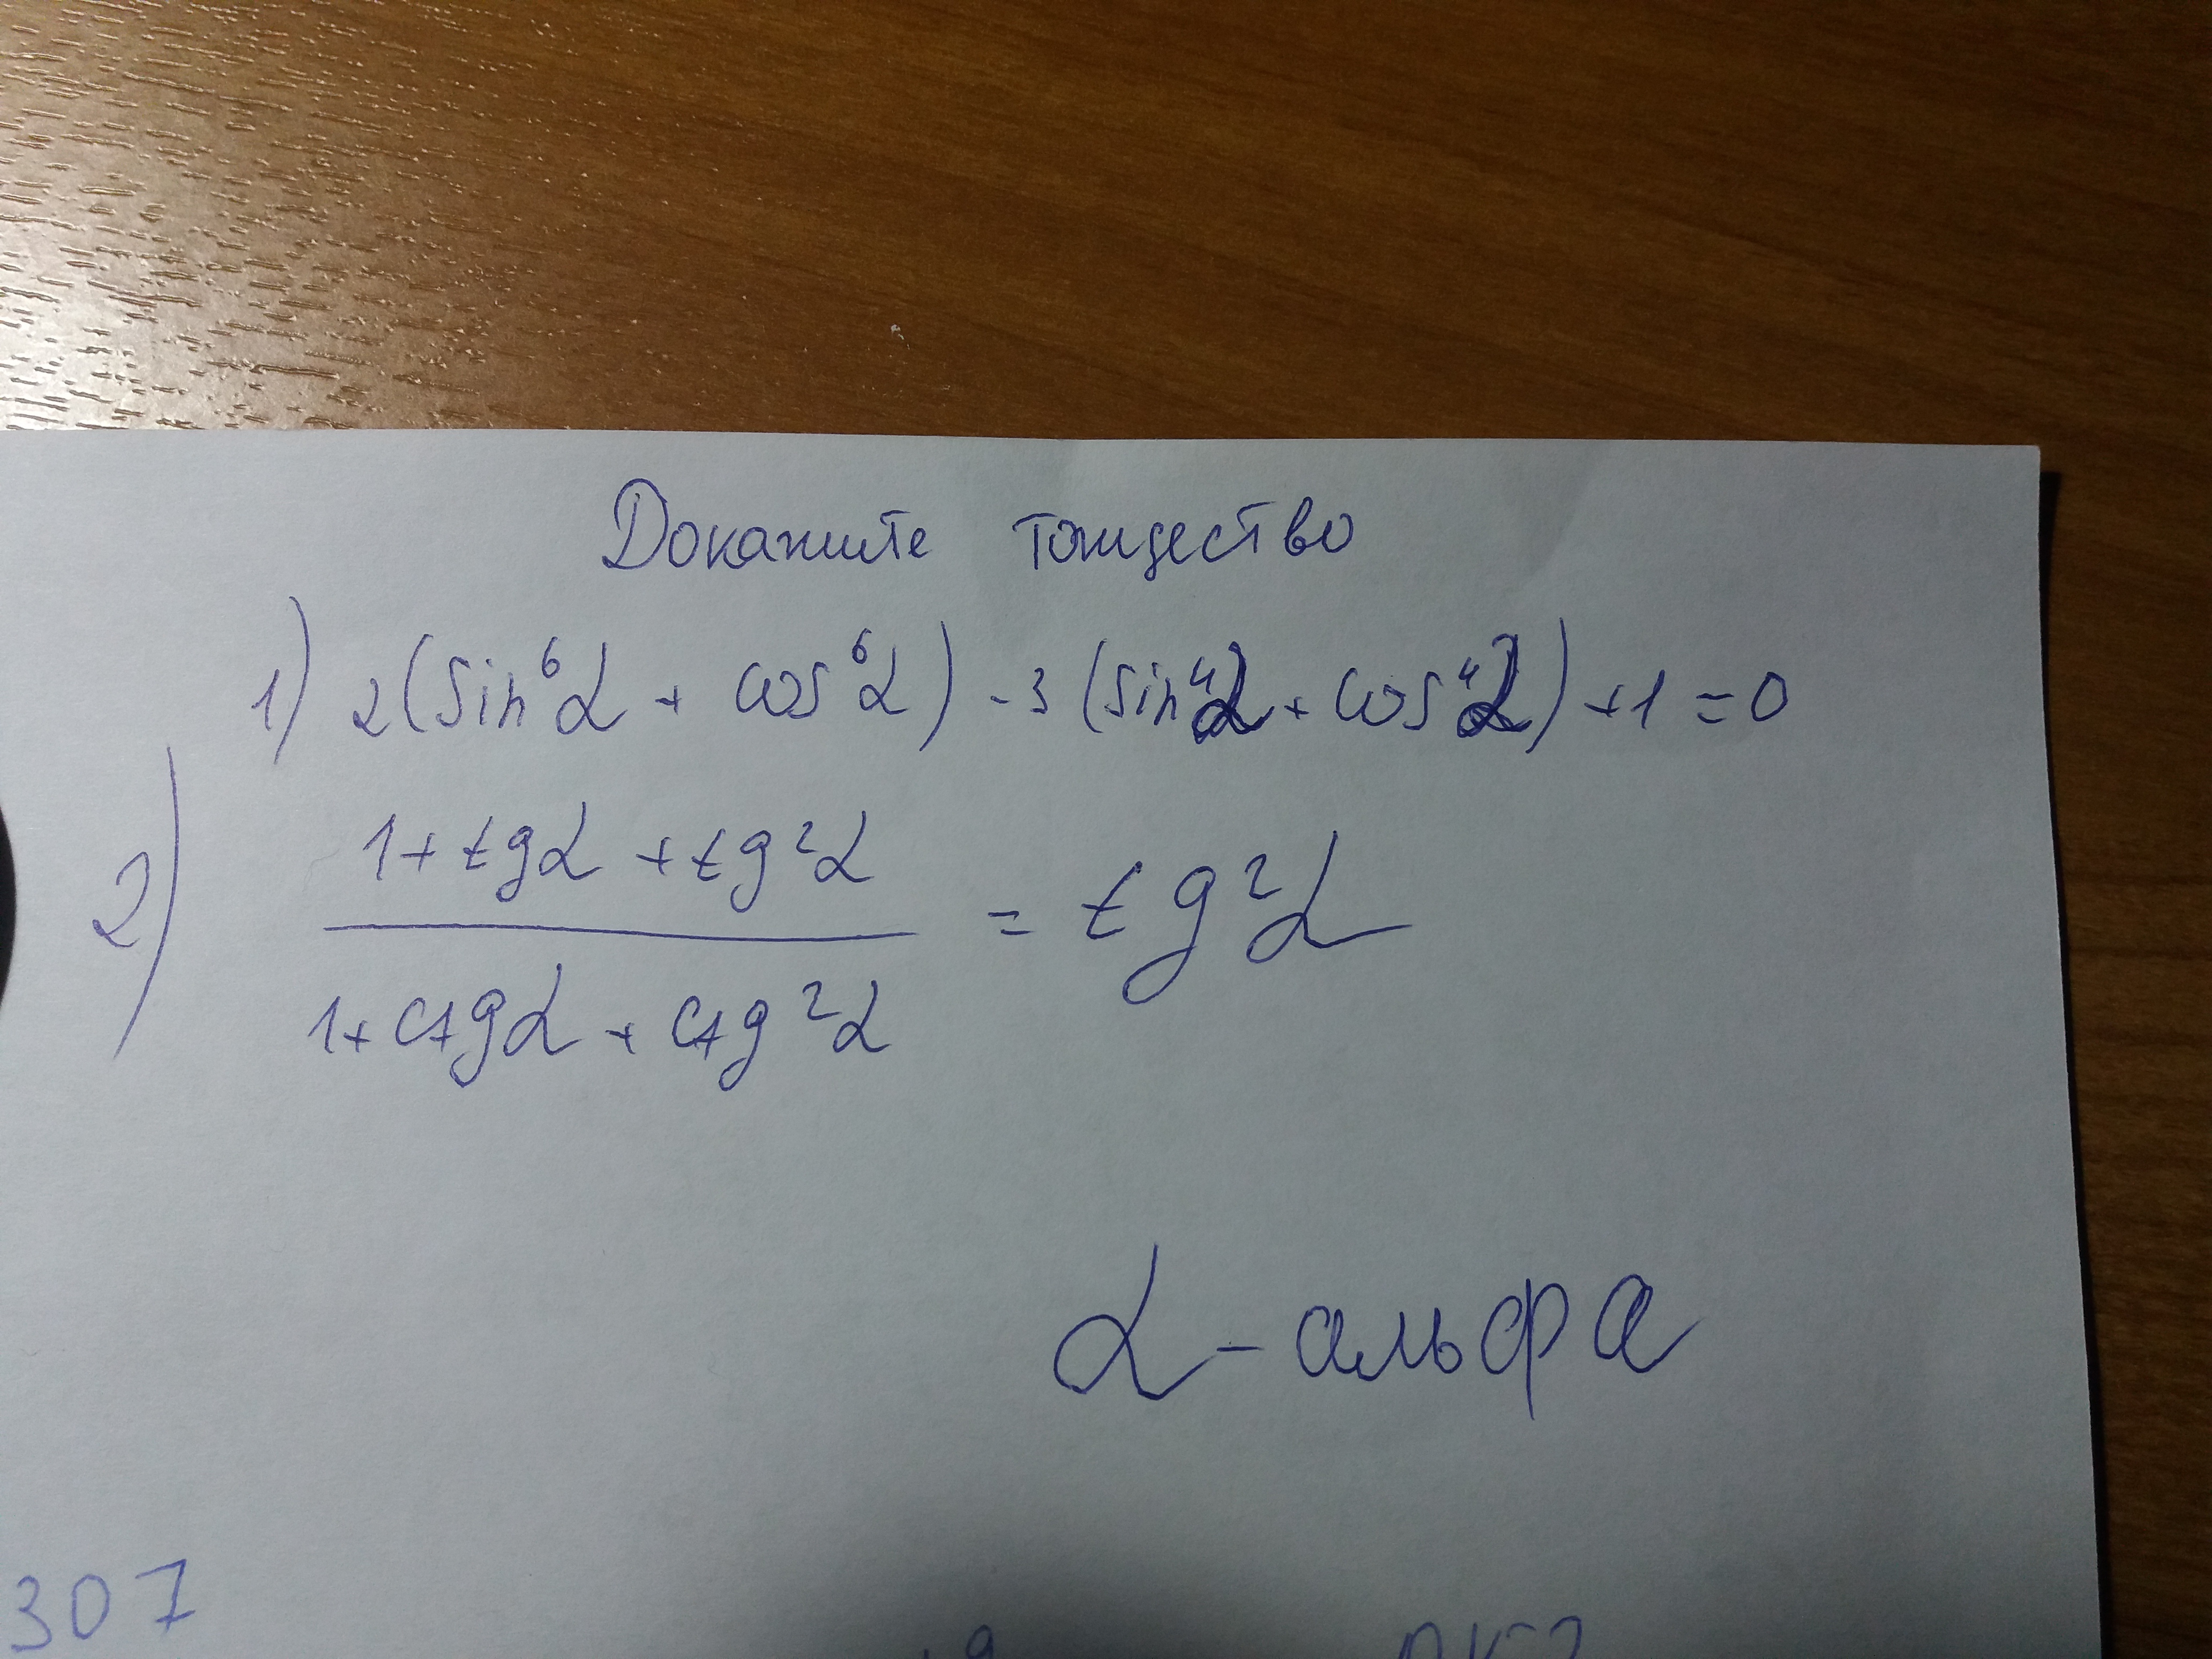 Докажите тождество
1) 2(sin⁶α + cos⁶α) - 3 (sin⁴α + cos⁴α) + 1 = 0
2) (1 + tgα + tg²α) / (1 + ctgα + ctg²α) = tg²α
α - альфа
307